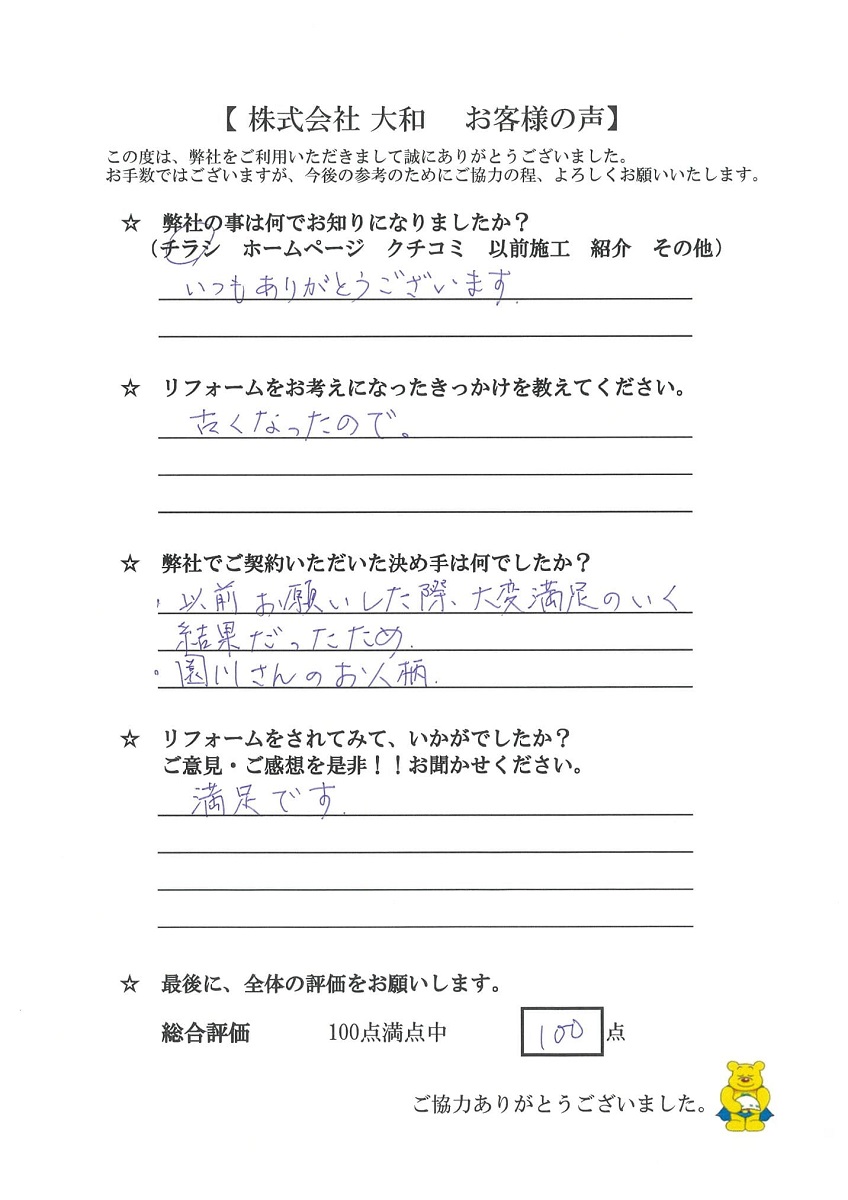 【 株式会社 大和　お客様の声】
この度は、弊社をご利用いただきまして誠にありがとうございました。
お手数ではございますが、今後の参考のためにご協力の程、よろしくお願いいたします。
☆　弊社の事は何でお知りになりましたか？
（チラシ　ホームページ　クチコミ　以前施工　紹介　その他）
いつもありがとうございます.
☆　リフォームをお考えになったきっかけを教えてください。
古くなったので。
☆　弊社でご契約いただいた決め手は何でしたか？
・以前お願いした際、大変満足のいく
結果だったため.
・園川さんのお人柄.
☆　リフォームをされてみて、いかがでしたか？
ご意見・ご感想を是非！！お聞かせください。
満足です.
☆　最後に、全体の評価をお願いします。
総合評価　100点満点中　100 点
ご協力ありがとうございました。